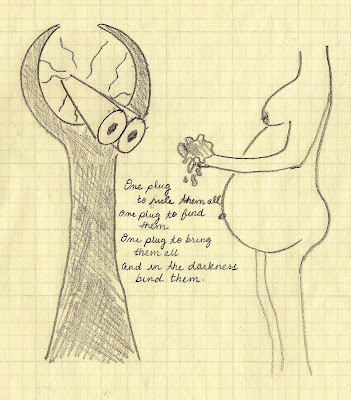 One plug
to rule them all
One plug to find
them
One plug to bring
them all
and in the darkness
bind them.